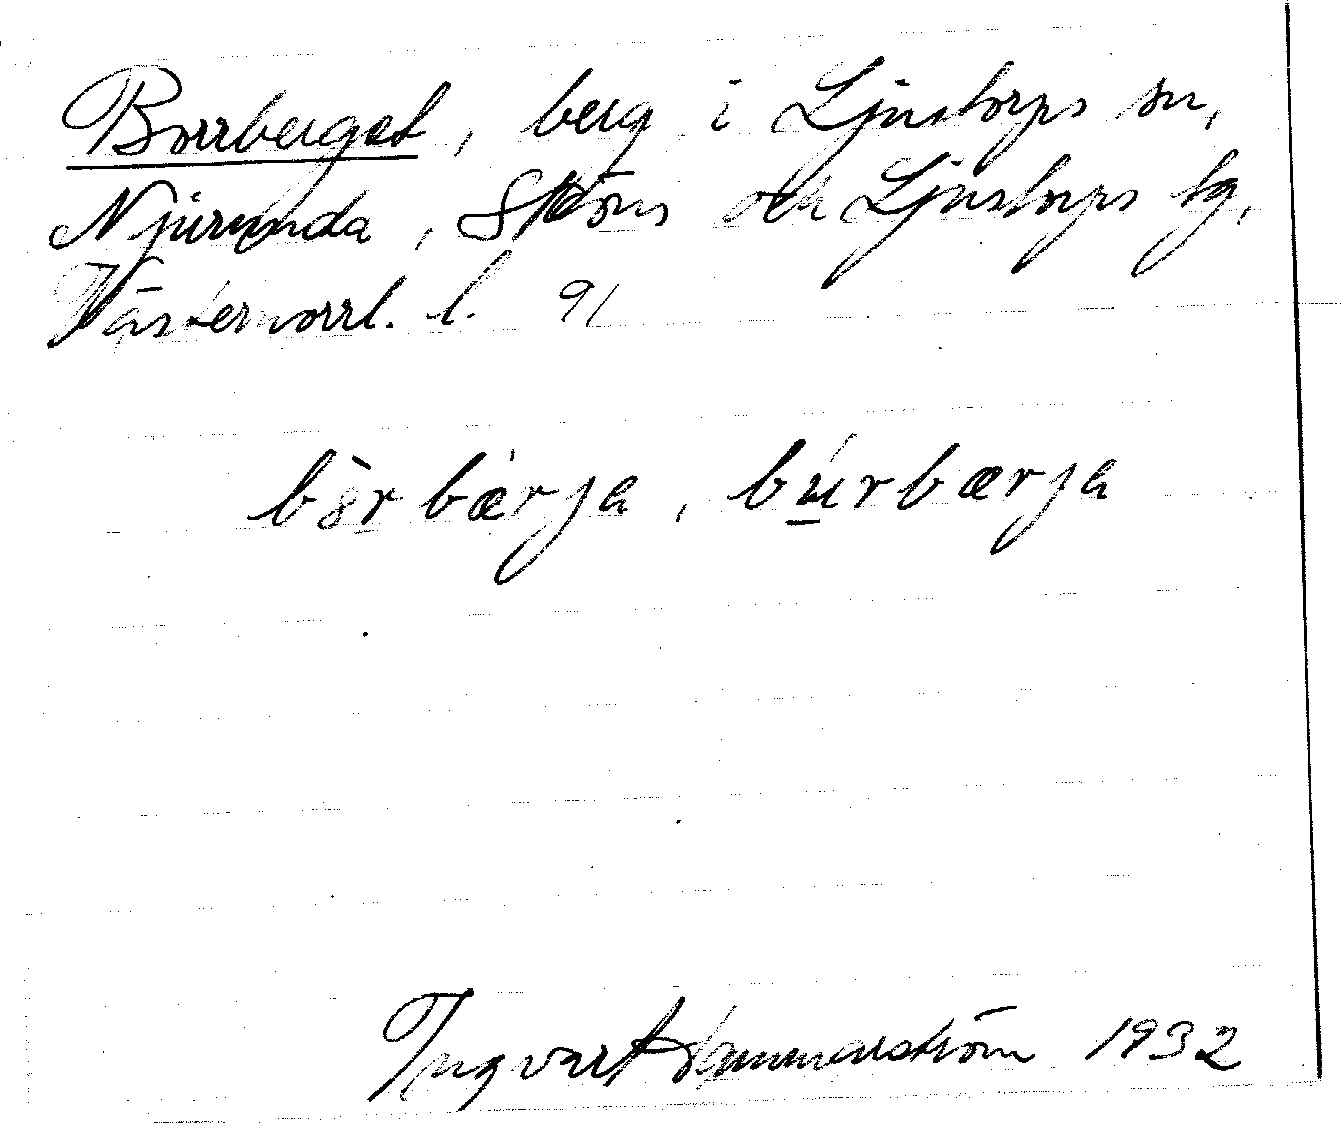 Borrberget, berg i Ljustorps sn,
Njurunda, Sköns och Ljustorps tg,
Västernorrl. l. 91
bɜ̀rbæ̀rja, bú̲rbærja
Ingvart Hammarström 1932